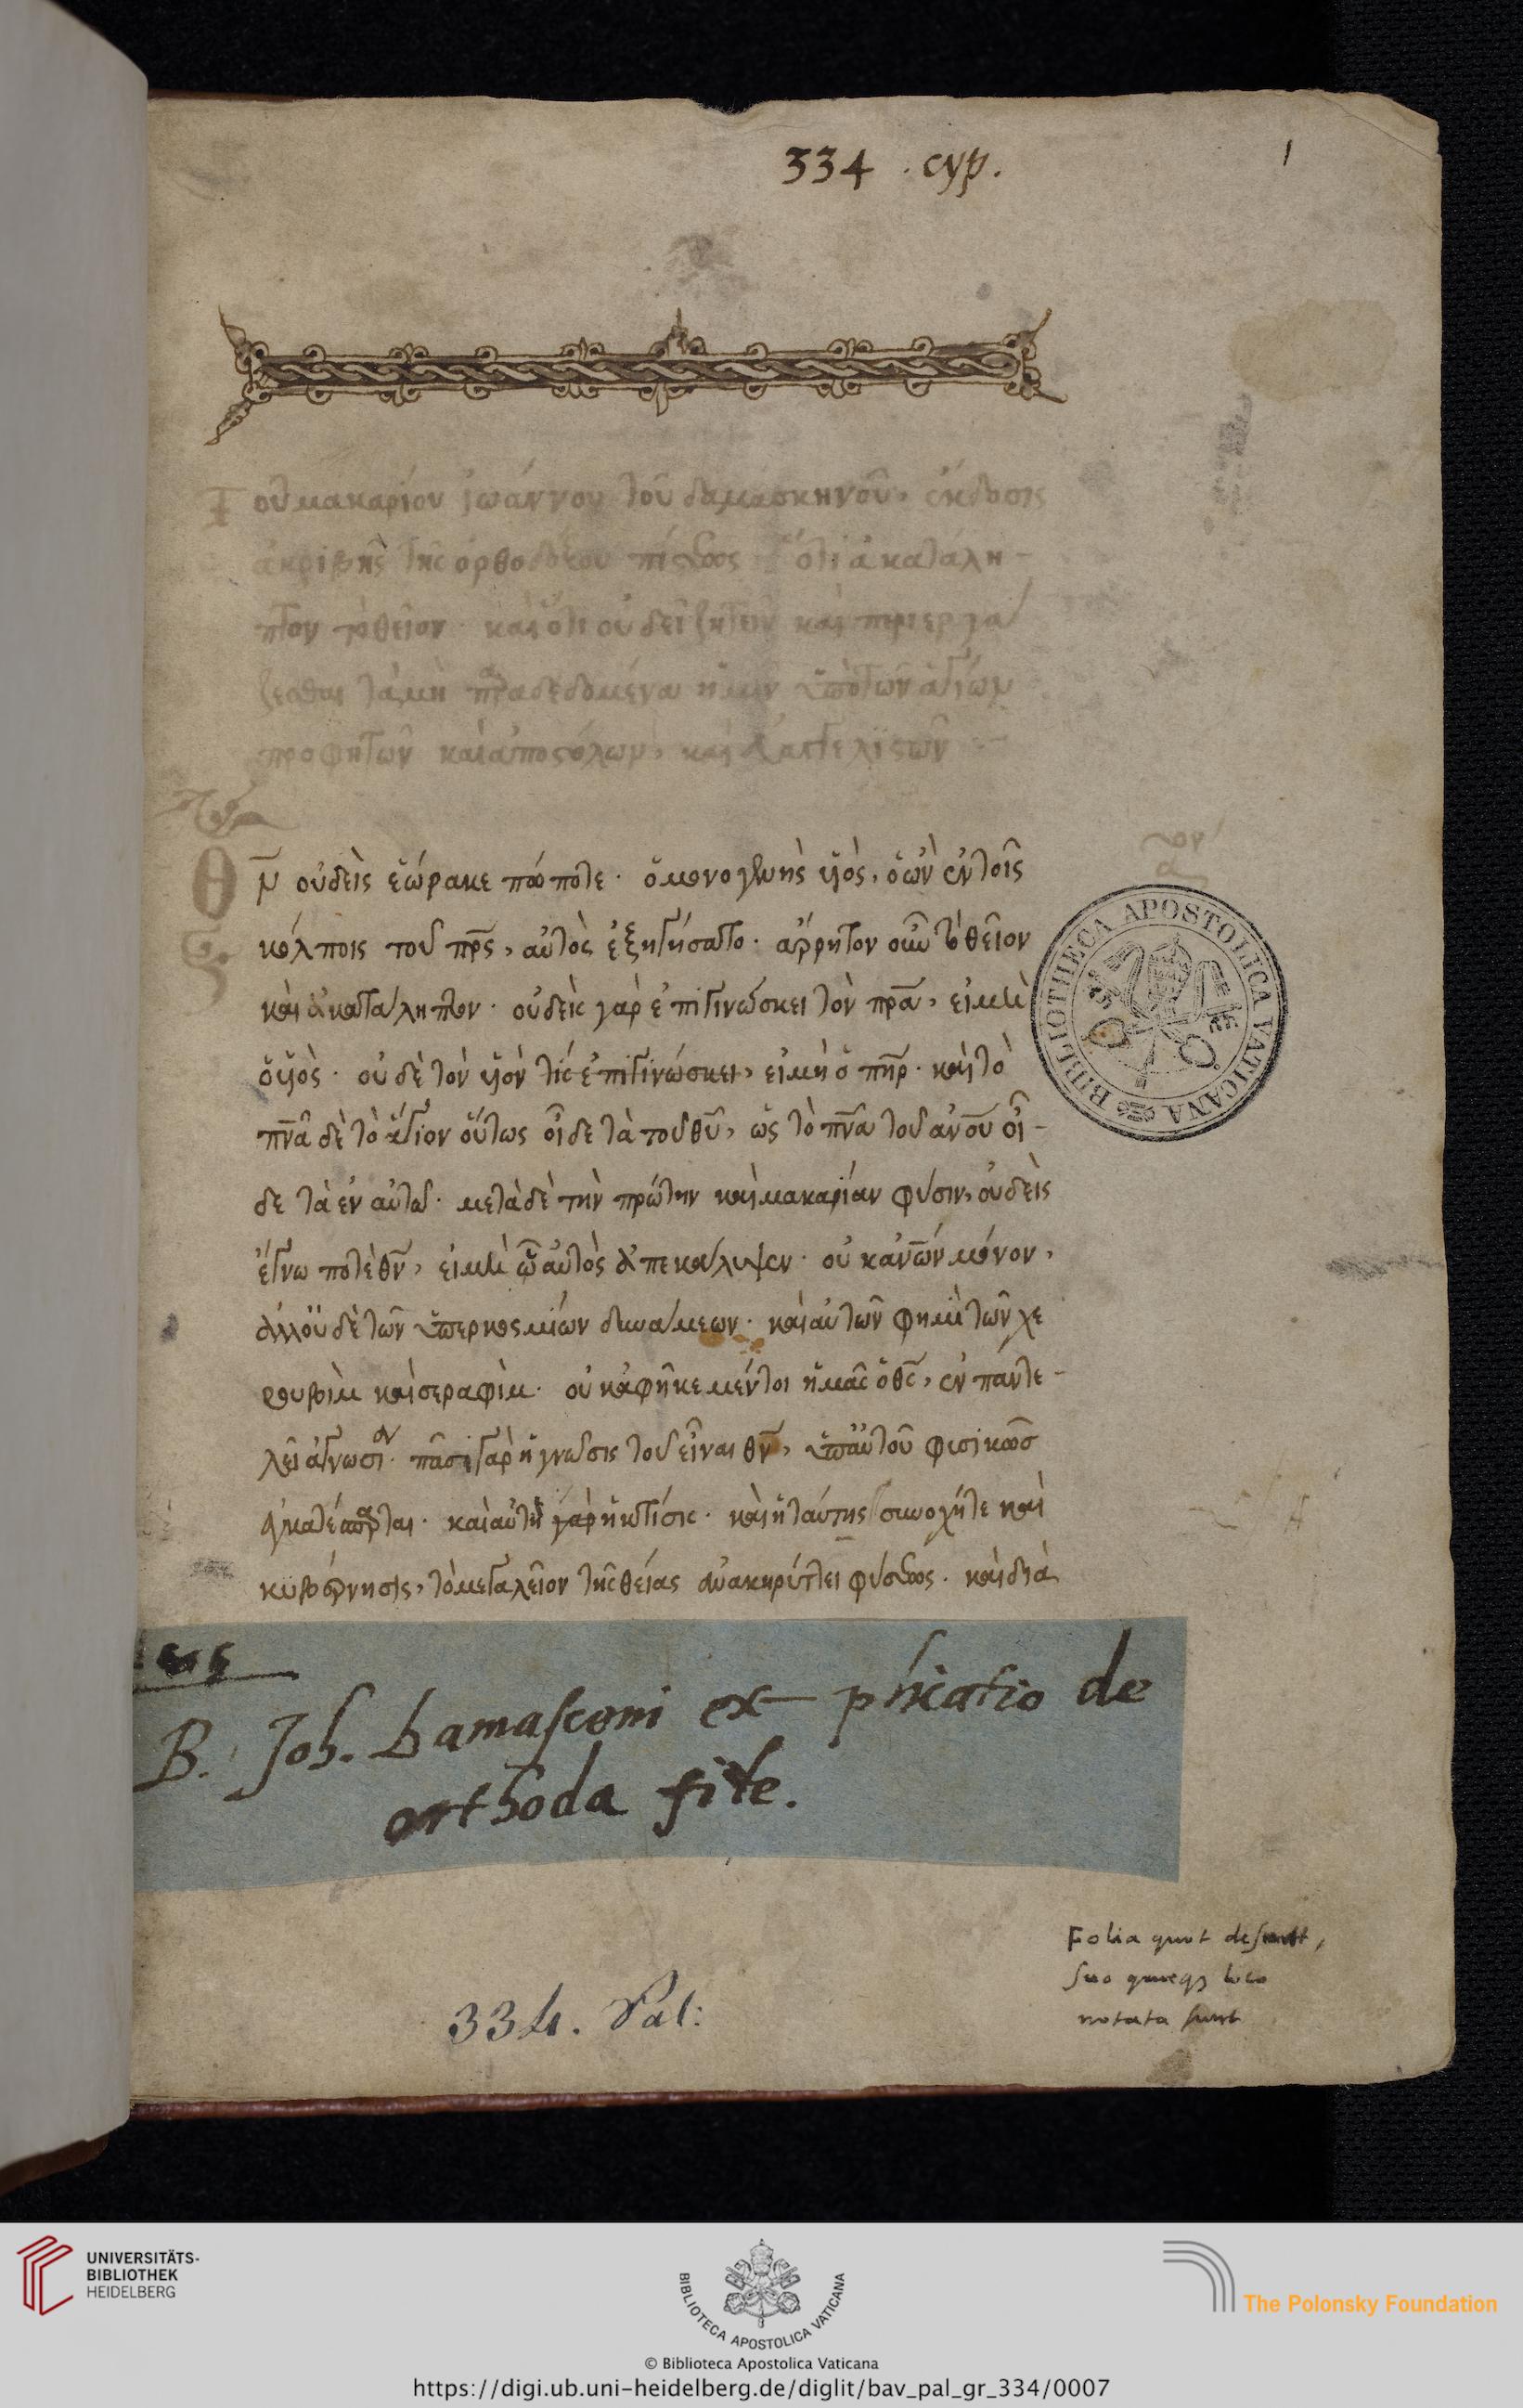 334 . cyp.
1
Τοῦ μακαρίου ἰωάννου τοῦ δαμασκηνοῦ, ἔκδοσις
ἀκριβὴς τῆς ὀρθοδόξου πίστεως ὅτι ἀκατάλη-
πτον τὸ θεῖον· καὶ ὅτι οὐ δεῖ ζητεῖν καὶ περιεργά
ζεσθαι τὰ μὴ παραδεδομένα ἡμῖν ὑπὸ τῶν ἁγίων
προφητῶν καὶ ἀποστόλων, καὶ εὐαγγελιστῶν
Θν̅ οὐδεὶς ἑώρακε πώποτε· ὁ μονογενὴς υἱὸς, ὁ ὢν ἐν τοῖς
κόλποις τοῦ πρ̅ς, αὐτὸς ἐξηγήσατο· ἄρρητον οὖν τὸ θεῖον
καὶ ἀκατάληπτον· οὐδεὶς γὰρ ἐπιγινώσκει τὸν πρ̅α, εἰ μὴ
ὁ υἱὸς· οὐδὲ τὸν υἱόν τίς ἐπιγινώσκει, εἰ μὴ ὁ πη̅ρ· καὶ τὸ
πν̅α δὲ τὸ ἅγιον οὕτως οἶδε τὰ τοῦ θυ̅, ὡς τὸ πν̅α τοῦ ἀνο̅υ οἶ-
δε τὰ ἐν αὐτῶ· μετὰ δὲ τὴν πρώτην καὶ μακαρίαν φύσιν, οὐδεὶς
ἔγνω ποτὲ θν̅, εἰ μὴ ᾧ αὐτὸς ἀπεκάλυψεν· οὐκ ἀνω̅ν μόνον,
ἀλλ' οὐδὲ τῶν ὑπερκοσμίων δυνάμεων· καὶ αὐτῶν φημὶ τῶν χε
ρουβὶμ καὶ σεραφὶμ· οὐκ ἀφῆκε μέντοι ἡμᾶς ὁ θς̅, ἐν παντε-
λεῖ ἀγνωσία· πᾶσι γὰρ ἡ γνῶσις τοῦ εἶναι θν̅, ὑπ' αὐτοῦ φυσικῶσ
ἐγκατέσπαρται· καὶ αὐτὴ γὰρ ἡ κτίσις· καὶ ἡ ταύτης συνοχή τε καὶ
κυβέρνησις, τὸ μεγαλεῖον τῆς θείας ἀνακηρύττει φύσεως· καὶ διὰ
BIBLIOTHECA APOSTOLICA VATICANA
B. Joh. Damasceni ex- plicatio de
orthoda fide.
Folia quot desunt,
suo quaeqz loco
notata sunt
334. Pal:
UNIVERSITÄTS-
BIBLIOTHEK
HEIDELBERG
BIBLIOTECA APOSTOLICA VATICANA
The Polonsky Foundation
© Biblioteca Apostolica Vaticana
https://digi.ub.uni-heidelberg.de/diglit/bav_pal_gr_334/0007